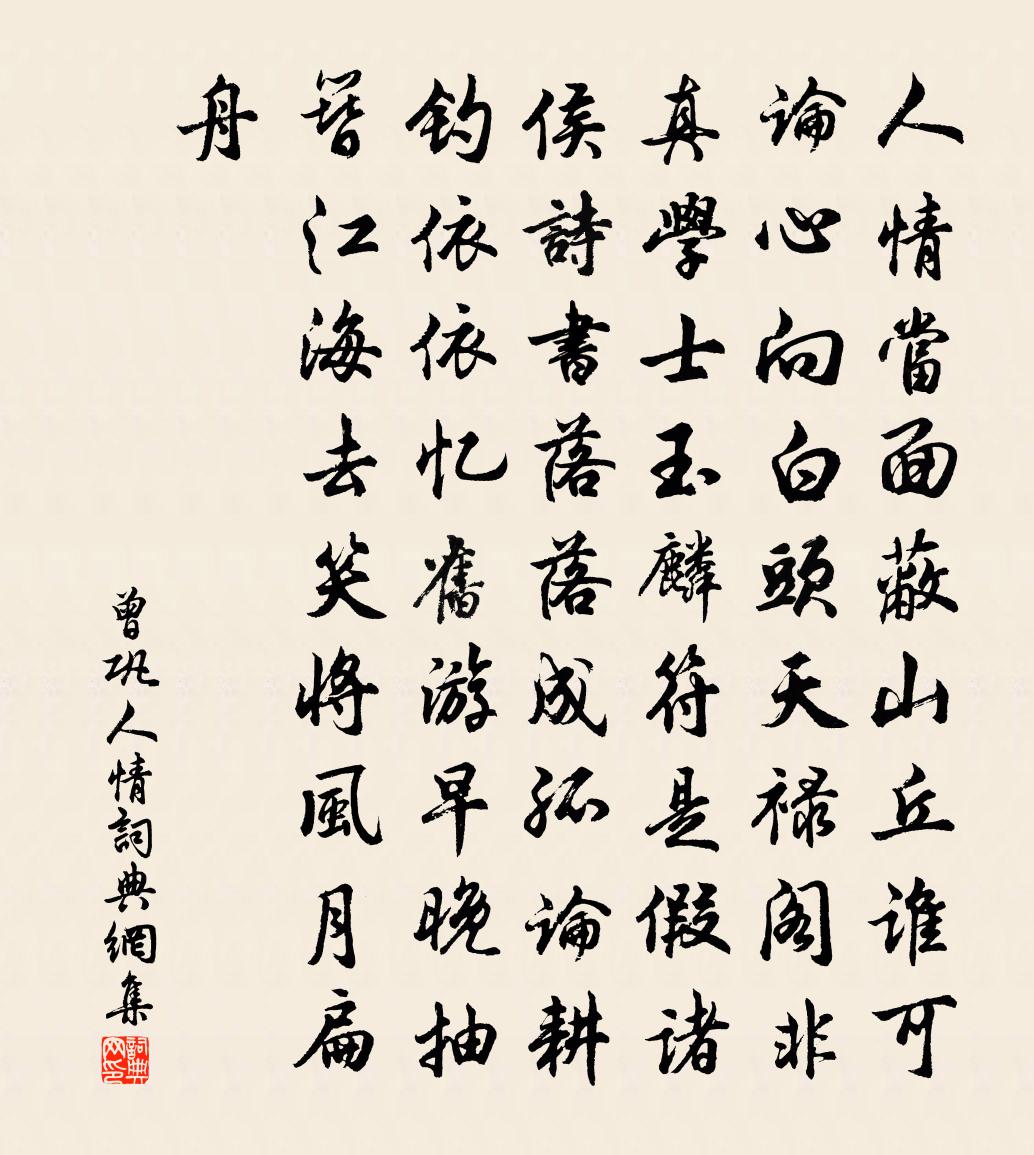 人情當面蔽山丘谁可
論心向白頭天禄阁非
真學士玉麟符是假诸
侯詩書落落成孤論耕
钓依依忆舊游早晚抽
簪江海去笑將風月扁
舟
曾巩人情詞典網集
詞典网印